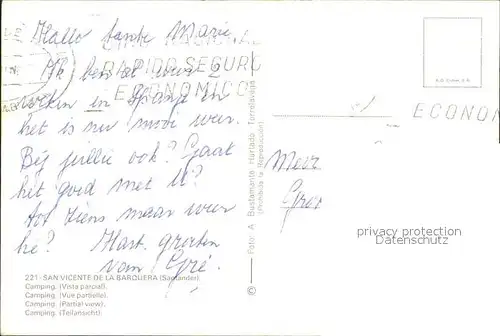 Hallo tante Marie,
Ik ben al weer 2
weken in Spanje en
het is nu mooi weer.
Bij jullie ook? Gaat
het goed met U?
Tot ziens maar weer
hè? Hart. groeten
van Gré.
RAPIDO SEGURO
ECONOMICO
ECONOM
221 - SAN VICENTE DE LA BARQUERA (Santander).
Camping. (Vista parcial).
Camping. (Vue partielle).
Camping. (Partial view).
Camping. (Teilansicht).
Foto: A. Bustamante Hurtado. Torrelavega
(Prohibida la Reproducción)
Mevr
privacy protection
Datenschutz